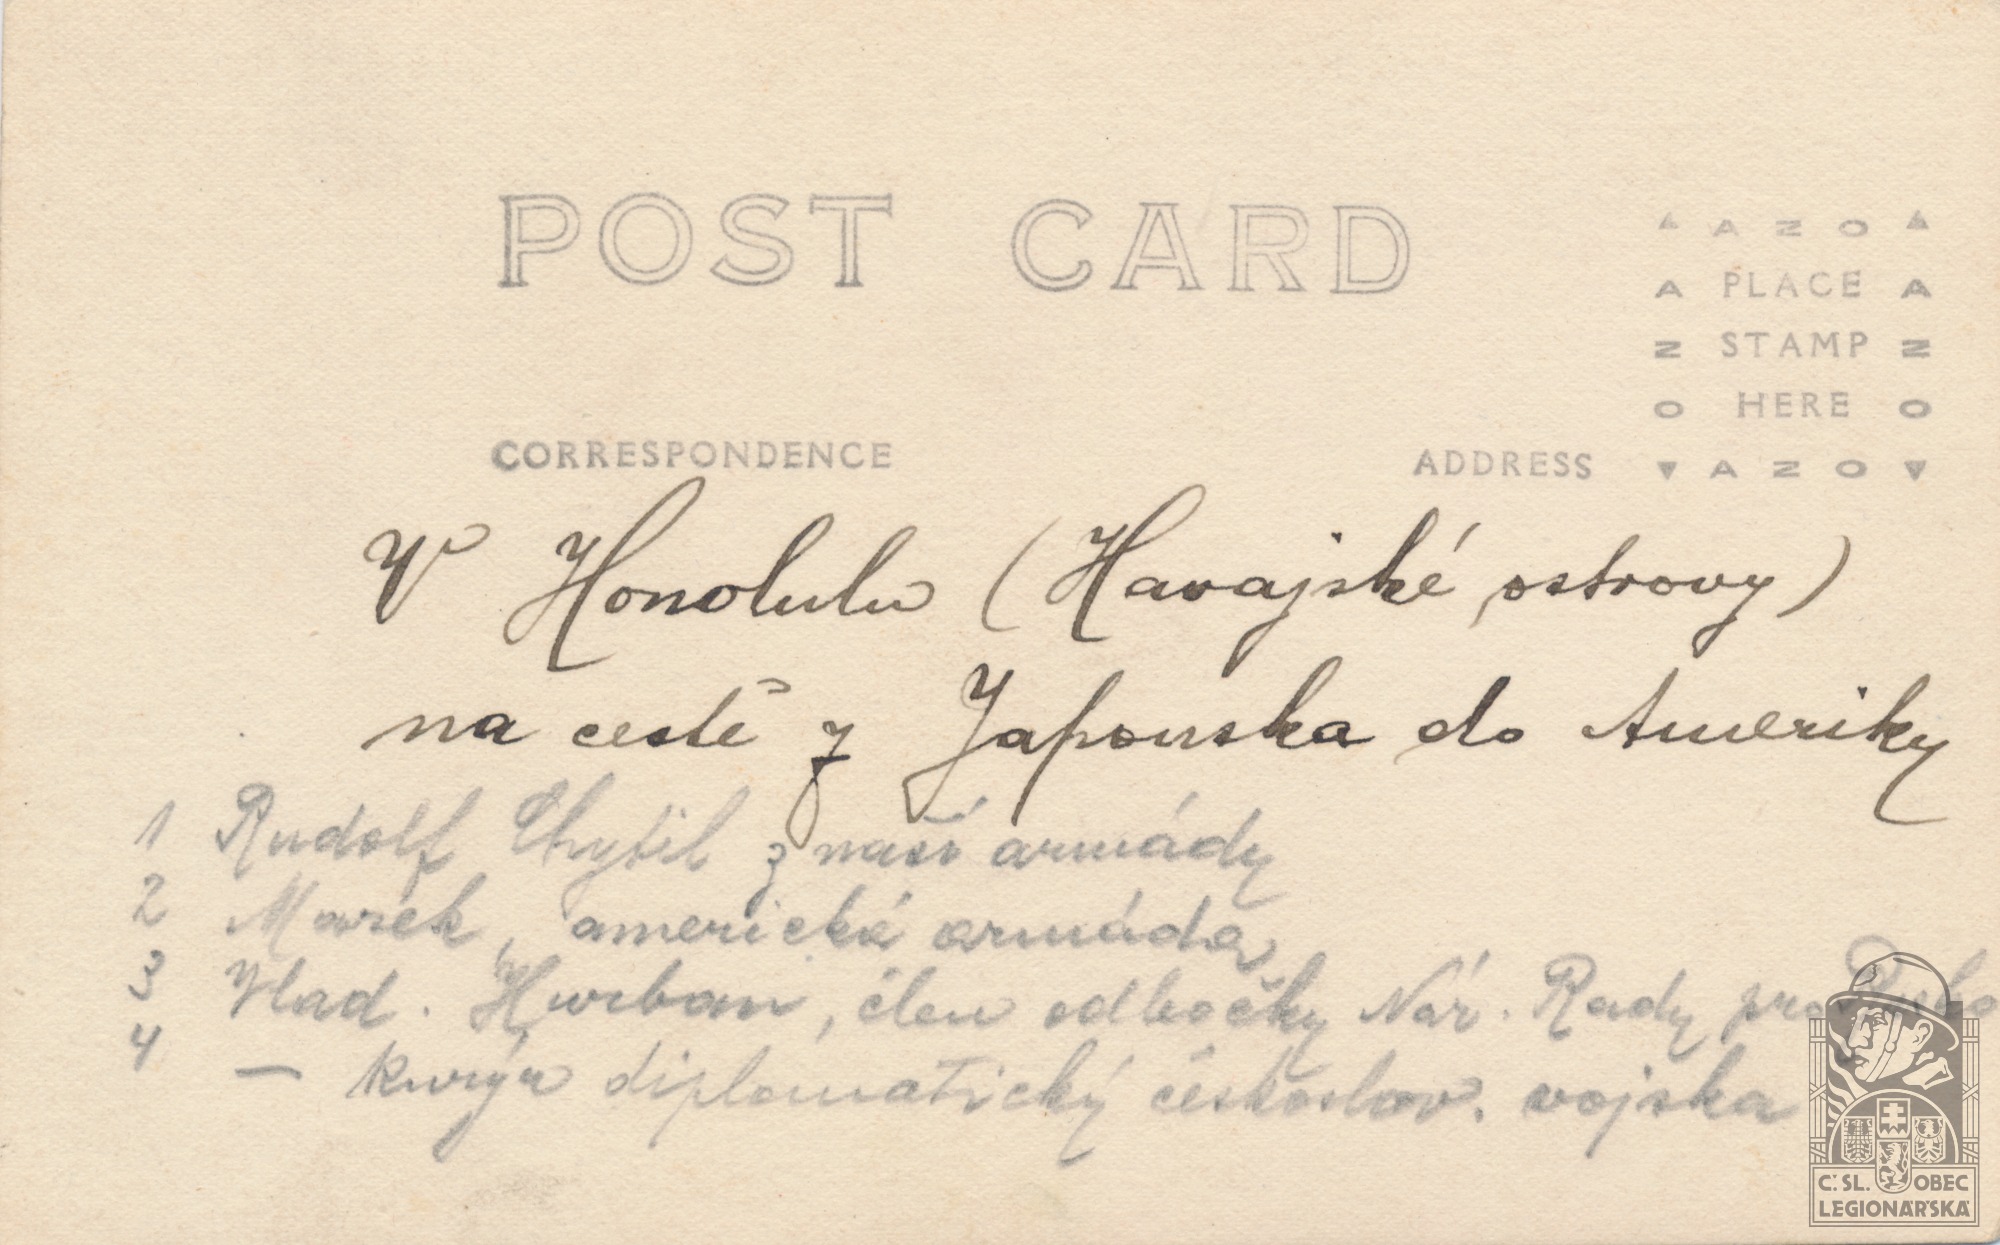 POST CARD
AZO
PLACE
STAMP
HERE
AZO
AZO
AZO
CORRESPONDENCE
ADDRESS
V Honolulu (Havajské ostrovy)
na cestě z Japonska do Ameriky
1 Rudolf Chytil z naší armády
2 Marek, americká armáda
3 Vlad. Hurban, člen odbočky Nár. Rady pro Rusko
4 — kurýr diplomatický českoslov. vojska
Č. SL. OBEC
LEGIONÁŘSKÁ